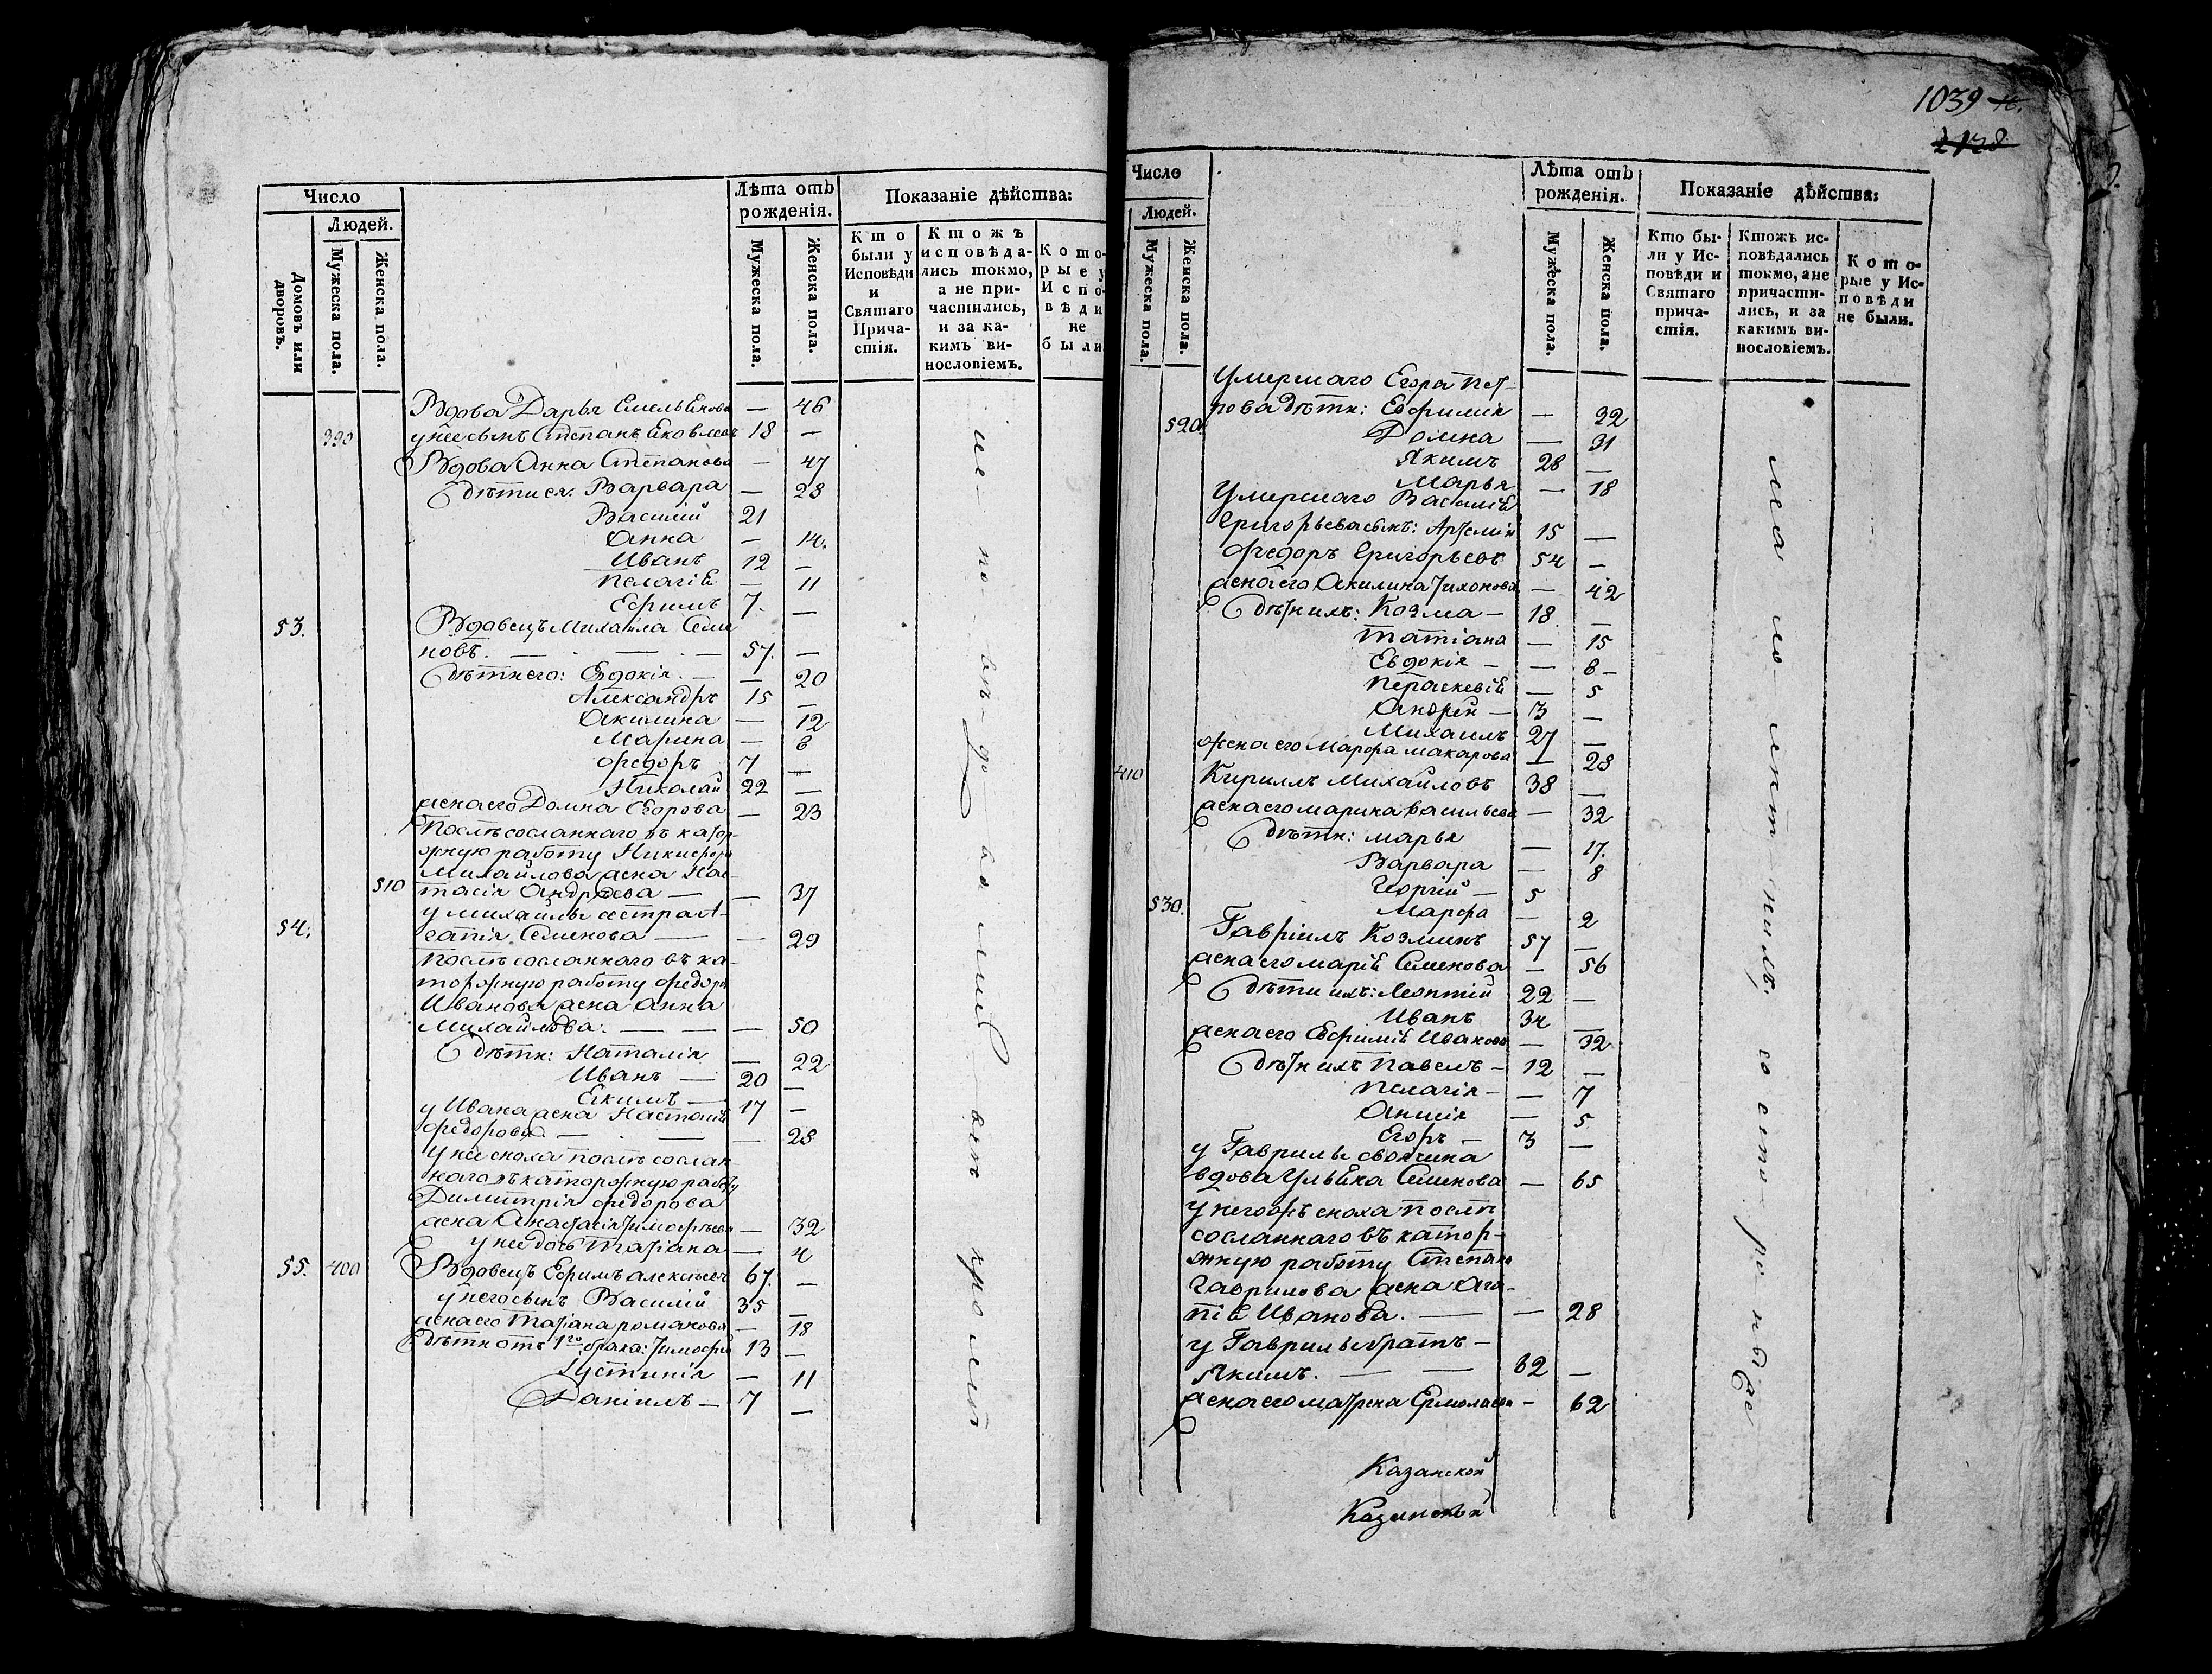 Число
Людей.
Домовъ или дворовъ.
Мужеска пола.
Женска пола.
Лѣта отъ рожденія.
Мужеска пола.
Женска пола.
Показаніе дѣйства:
Кто были у Исповѣди и Святаго Причастія.
Ктожъ исповѣдались токмо, а не причастились, и за какимъ винословіемъ.
Которые у Исповѣди не были.
Вдова Дарья Емельянова — 46
390 у нее сынъ Степанъ Яковлевъ 18 —
Вдова Анна Степанова — 47
дѣти ея: Варвара — 28
Василій 21
Анна — 14.
Иванъ 12 —
Пелагія — 11
Ефимъ 7. —
53. Вдовецъ Михайла Семе
новъ. — 57. —
дѣти его: Евдокія — 20
Александръ 15 —
Акилина — 12
Марина — 8
Федоръ 7 —
Николай 22 —
жена его Домна Егорова — 23
Послѣ сосланнаго въ катор-
жную работу Никифора
Михайлова жена Нас-
510 тасія Андреева — — 37
у Михайлы сестра А-
54. гапія Семенова — — 29
Послѣ сосланнаго въ ка-
торжную работу Федора
Иванова жена Анна
Михайлова. — — 50
дѣти: Наталія — 22
Иванъ — 20 —
Екимъ — 17 —
у Ивана жена Настасія
Федорова — — 28
У нее сноха послѣ сослан
наго въ каторжную работу
Димитрія Федорова
жена Анастасія Тимофеева — 32
у нее дочь Татіана — 4
55. 400 Вдовецъ Ефимъ Алексеевъ 67. —
у него сынъ Василій 35 —
жена его Татіана Романова — 18
дѣти отъ 1го брака: Тимофей 13 —
Іустинія — 11
Даніилъ — 7 —
1039
2128
Число
Людей.
Мужеска пола.
Женска пола.
Лѣта отъ рожденія.
Мужеска пола.
Женска пола.
Показаніе дѣйства:
Кто были у Исповѣди и Святаго причастія.
Ктожъ исповѣдались токмо, а не причастились, и за какимъ винословіемъ.
Которые у Исповѣди не были.
Умершаго Егора Пет-
520. рова дѣти: Евфимія — 32
Домна — 31
Якимъ 28 —
Марья — 18
Умершаго Василія
Григорьева сынъ: Артемій 15 —
Федоръ Григорьевъ 54 —
жена его Акилина Тихонова — 42
дѣти ихъ: Козма — 18 —
Татіана — 15
Евдокія — — 8 —
Параскевія — 5
Андрей — 3 —
Михаилъ 27 —
жена его Марфа Макарова — 28
410 Кириллъ Михайловъ 38 —
жена его Марина Васильева — 32
дѣти: Марья — 17.
Варвара — 8
Георгій — 5
530. Марфа — 2
Гавріилъ Козминъ 57 —
жена его Марія Семенова — 56
дѣти ихъ: Леонтій 22 —
Иванъ 34 —
жена его Евфимія Иванова — 32
дѣти ихъ Павелъ — 12 —
Пелагія — — 7
Анисія — 5
Егоръ — 3 —
у Гаврилы свояч​ина
вдова Ульяна Семенова — 65
у негожъ сноха послѣ
сосланнаго въ катор-
жную работу Степана
Гаврилова жена Ага-
пія Иванова. — — 28
у Гаврилы братъ —
Якимъ. — — 62 —
жена его Матрена Ермолаева — 62
Казанской
Казанской